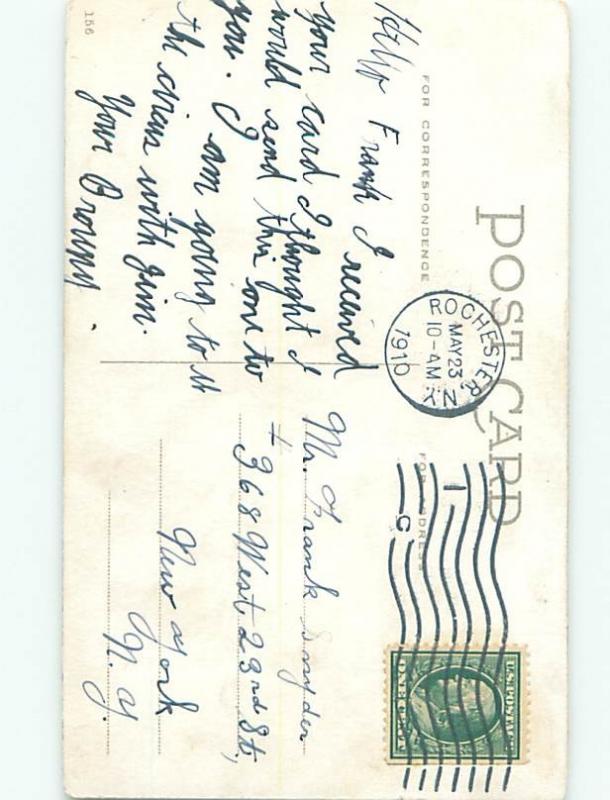 POST CARD
FOR CORRESPONDENCE
FOR ADDRESS
156
Hello Frank I received
your card I thought I
would send this one to
you. I am going to
the circus with Jim.
Your Browny.
ROCHESTER, N.Y.
MAY 23
10-AM
1910
1
C
U.S. POSTAGE
ONE CENT
Mr. Frank Snyder
368 West 23rd St,
New York
N. Y.